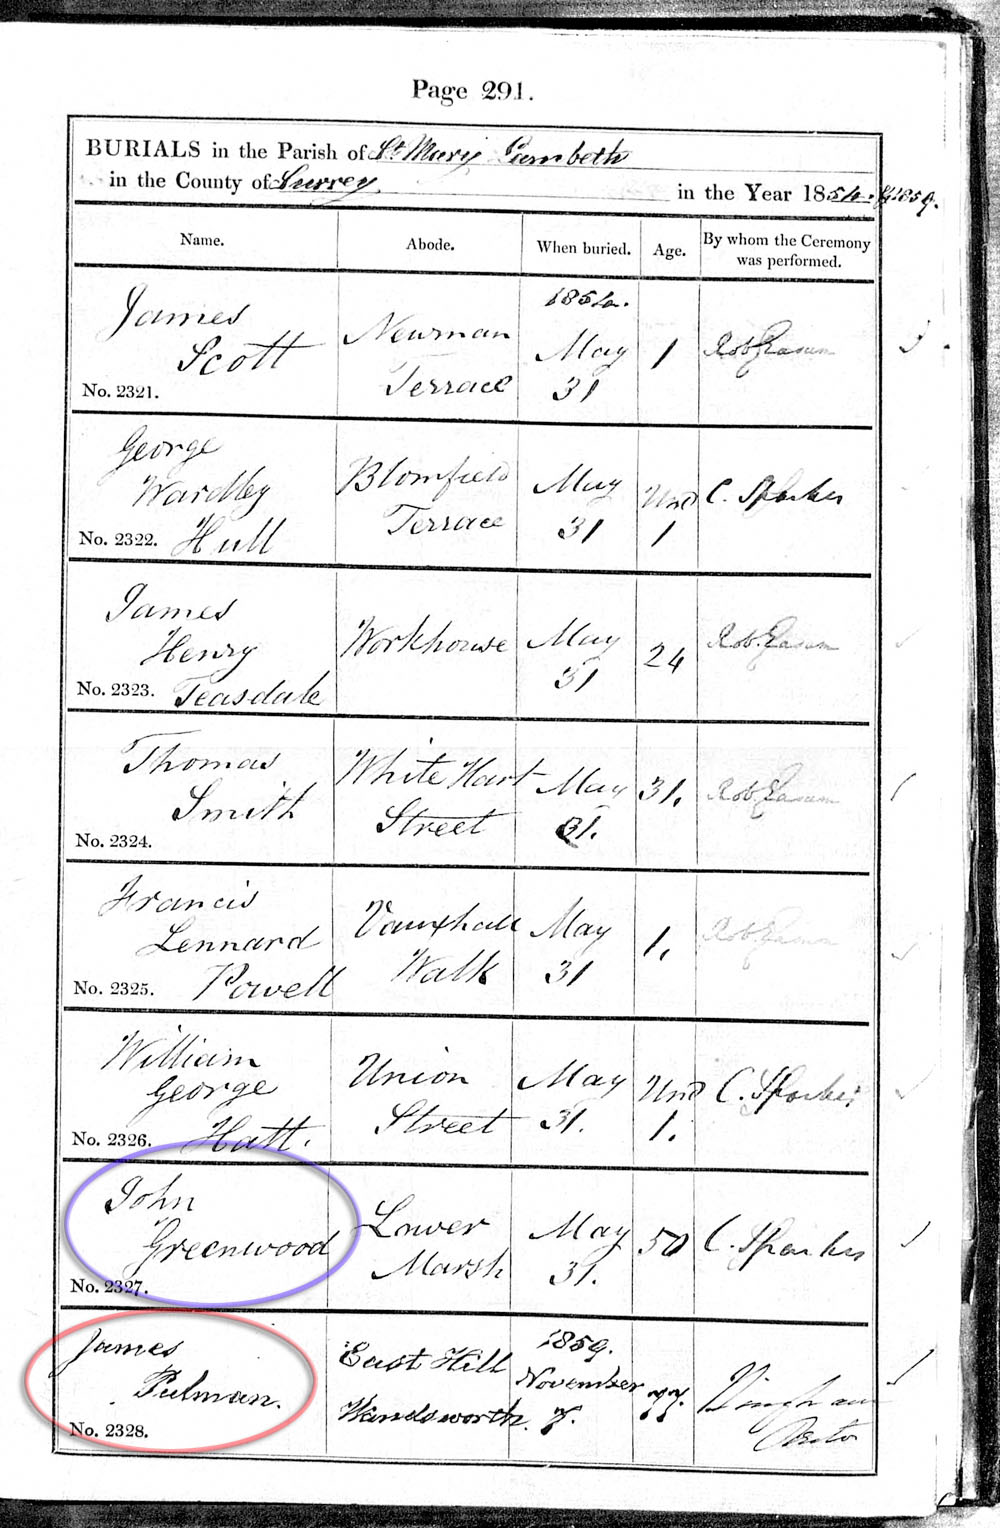 Page 291.
BURIALS in the Parish of St Mary Lambeth
in the County of Surrey in the Year 1854. & 1859.
Name. Abode. When buried. Age. By whom the Ceremony was performed.
James Scott
No. 2321.
Newman Terrace
1854. May 31
1
George Wardley Hull
No. 2322.
Blomfield Terrace
May 31
Und 1
C. Sparkes
James Henry Teasdale
No. 2323.
Workhouse
May 31
24
Thomas Smith
No. 2324.
White Hart Street
May 31.
31.
Francis Lennard Powell
No. 2325.
Vauxhall Walk
May 31
1.
William George Hatt.
No. 2326.
Union Street
May 31.
Und 1.
C. Sparkes
John Greenwood
No. 2327.
Lower Marsh
May 31.
50
C. Sparkes
James Pulman.
No. 2328.
East Hill Wandsworth.
1859. November 7.
77.